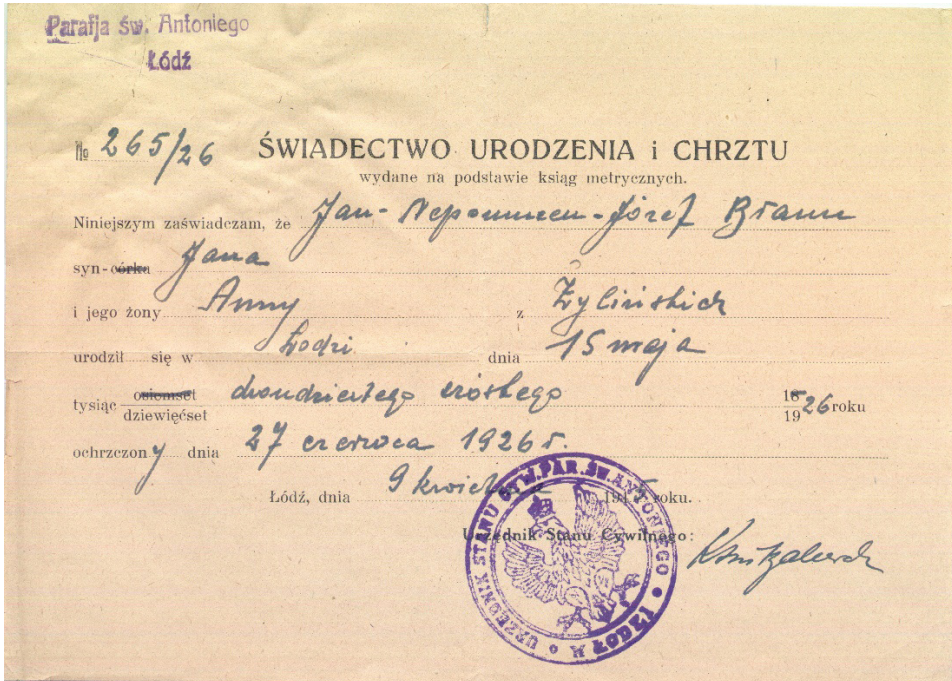 Parafja św. Antoniego
Łódź
№ 265/26 ŚWIADECTWO URODZENIA i CHRZTU
wydane na podstawie ksiąg metrycznych.
Niniejszym zaświadczam, że Jan-Nepomucen-Józef Braun
syn-córka Jana
i jego żony Anny z Żylińskich
urodził się w Łodzi dnia 15 maja
tysiąc osiemset dziewięćset dwudziestego szóstego 18 19 26 roku
ochrzczony dnia 27 czerwca 1926 r.
Łódź, dnia 9 kwietnia 1945 roku.
Urzędnik Stanu Cywilnego:
URZĘDNIK STANU CYW. PAR. ŚW. ANTONIEGO W ŁODZI